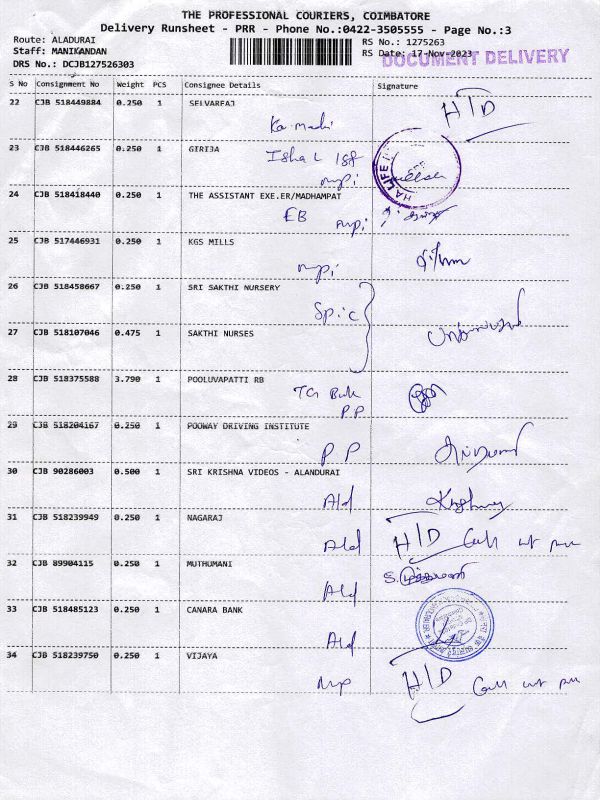 THE PROFESSIONAL COURIERS, COIMBATORE
Delivery Runsheet - PRR - Phone No.:0422-3505555 - Page No.:3
Route: ALADURAI RS No.: 1275263
Staff: MANIKANDAN RS Date: 17-Nov-2023
DOCUMENT DELIVERY
DRS No.: DCJB127526303
S No Consignment No Weight PCS Consignee Details Signature
22 CJB 518449884 0.250 1 SELVARFAJ H/D
23 CJB 518446265 0.250 1 GIRIJA
Isha L
24 CJB 518418440 0.250 1 THE ASSISTANT EXE.ER/MADHAMPAT
EB
25 CJB 517446931 0.250 1 KGS MILLS
26 CJB 518458667 0.250 1 SRI SAKTHI NURSERY
Spic
27 CJB 518107046 0.475 1 SAKTHI NURSES
28 CJB 518375588 3.790 1 POOLUVAPATTI RB
P.P
29 CJB 518204167 0.250 1 POOWAY DRIVING INSTITUTE
P P
30 CJB 90286003 0.500 1 SRI KRISHNA VIDEOS - ALANDURAI
Ald
31 CJB 518239949 0.250 1 NAGARAJ
Ald H/D Call
32 CJB 89904115 0.250 1 MUTHUMANI
Ald
33 CJB 518485123 0.250 1 CANARA BANK
Ald
34 CJB 518239750 0.250 1 VIJAYA
H/D Call